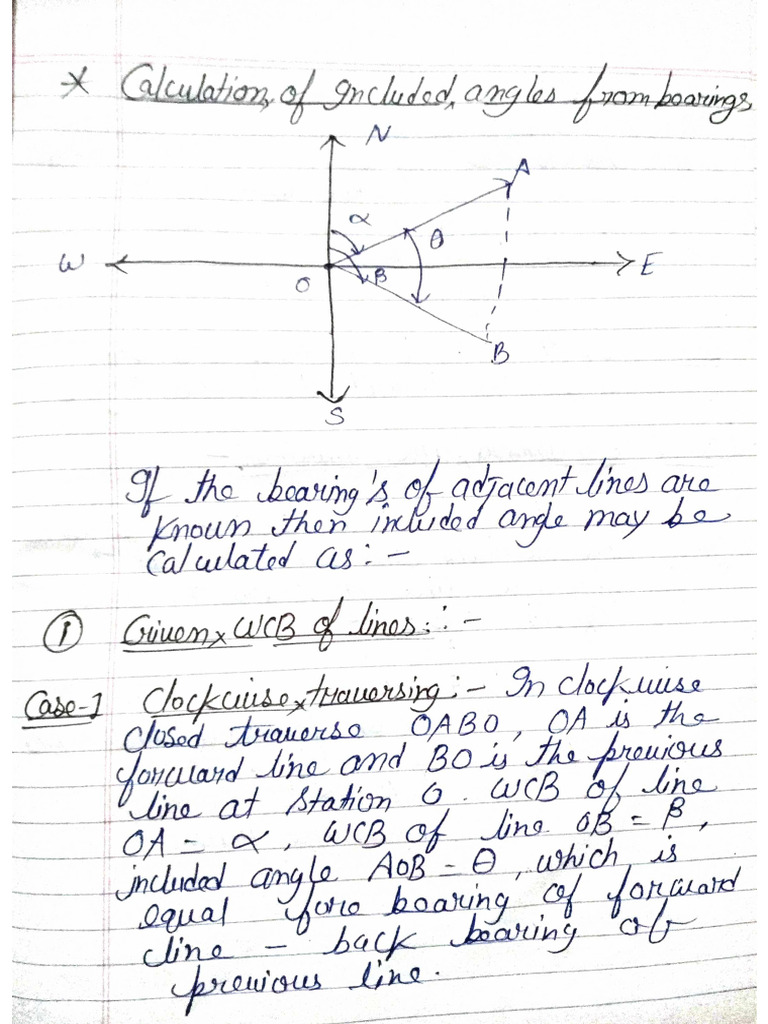 * Calculation of Included angles from bearings
N
A
α
θ
W
E
O
β
B
S
If the bearing's of adjacent lines are
known then included angle may be
calculated as: -
① Given WCB of lines: -
Case-1 Clockwise traversing: - In clockwise
closed traverse OABO, OA is the
forward line and BO is the previous
line at station O. WCB of line
OA = α, WCB of line OB = β,
included angle AOB = θ, which is
equal fore bearing of forward
line - back bearing of
previous line.